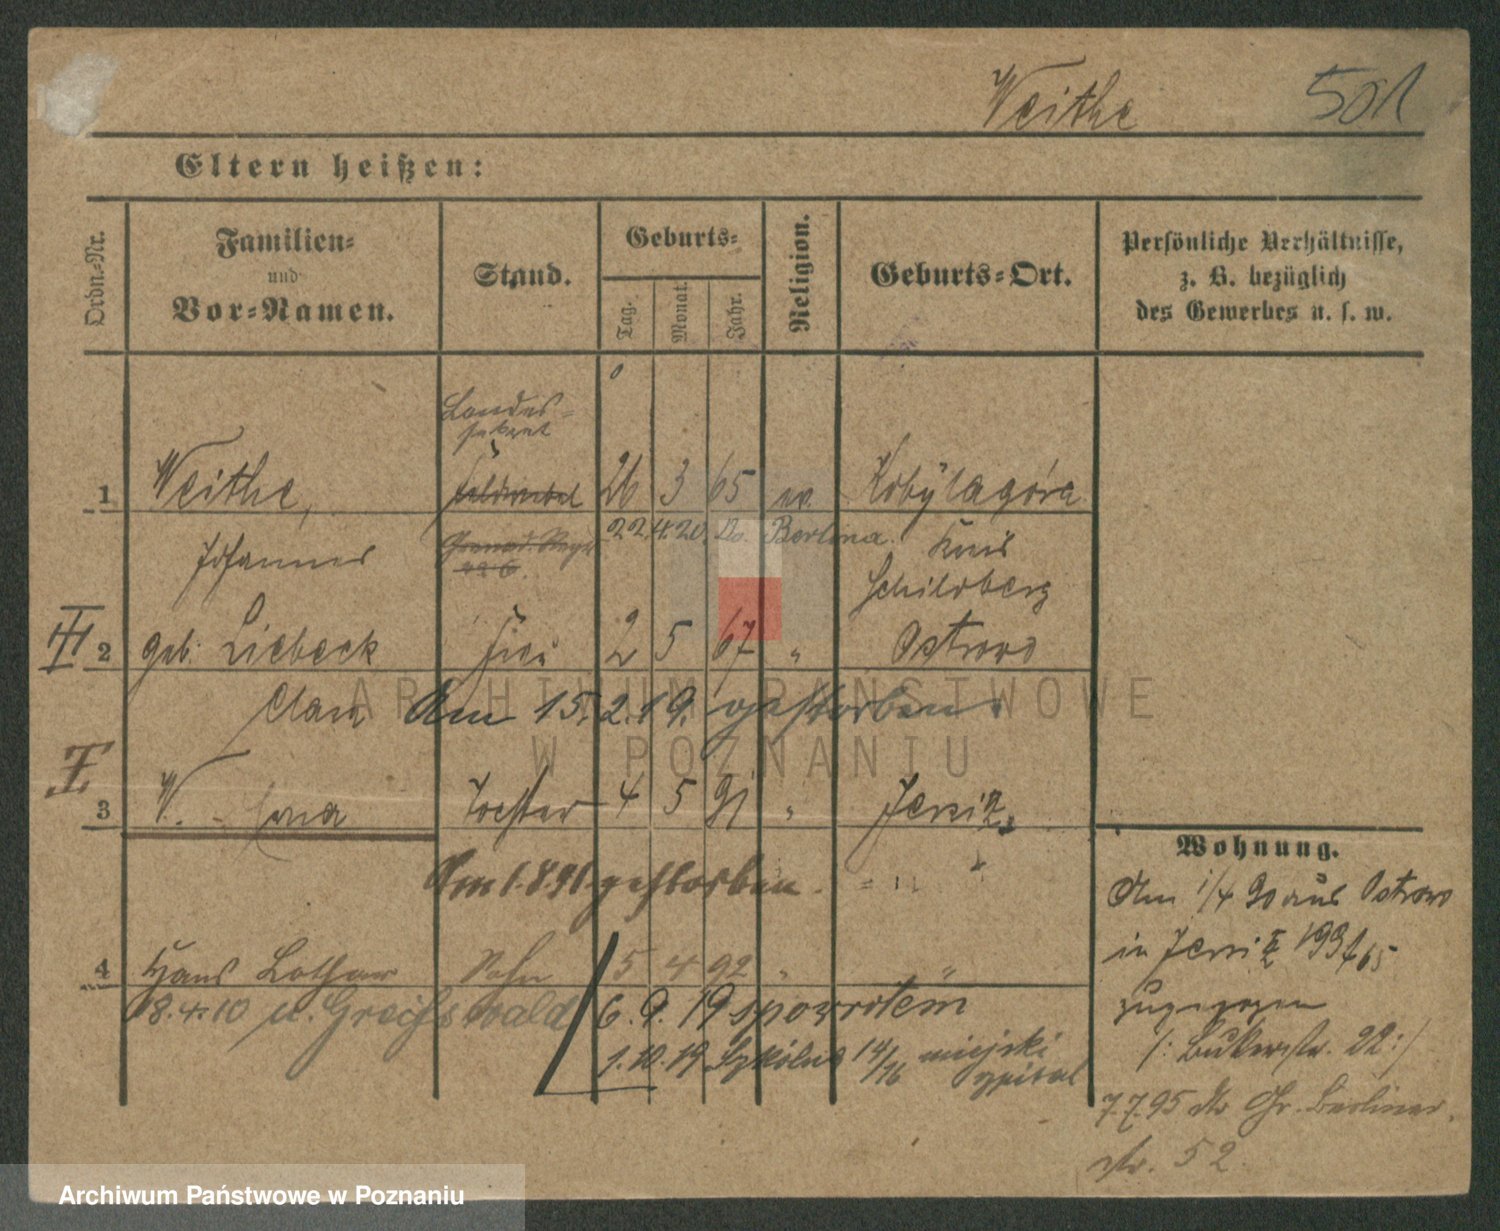 Weithe 501
Eltern heißen:
Ordn.=Nr.
Familien=
und
Vor=Namen.
Stand.
Geburts=
Tag.
Monat.
Jahr.
Religion.
Geburts=Ort.
Persönliche Verhältnisse,
z. B. bezüglich
des Gewerbes u. s. w.
Landes=
sekret
1 Weithe, Feldwebel 26 3 65 ev. Kobylagóra
Johannes
22.4.20. Do Berlina.
Kreis
Schildberg
III 2 geb. Liebeck 2 5 67 " Ostrowo
Clara Am 15.2.19. gestorben
I 3 W. Erna Tochter 4 5 91 " Jersitz
Am 1.8.91 gestorben
4 Hans Lothar Sohn 5 4 92 " "
18.4.10 n. Greifswald 6.9.19 spowrotem
1.10.19 Szkolna 14/16 miejski
szpital
Wohnung.
Am 1/4 90 aus Ostrowo
in Jersitz
zugezogen
/: Bukerstr. 22 :/
7.7.95 Gr. Berliner
str. 52
ARCHIWUM PAŃSTWOWE
W POZNANIU
Archiwum Państwowe w Poznaniu